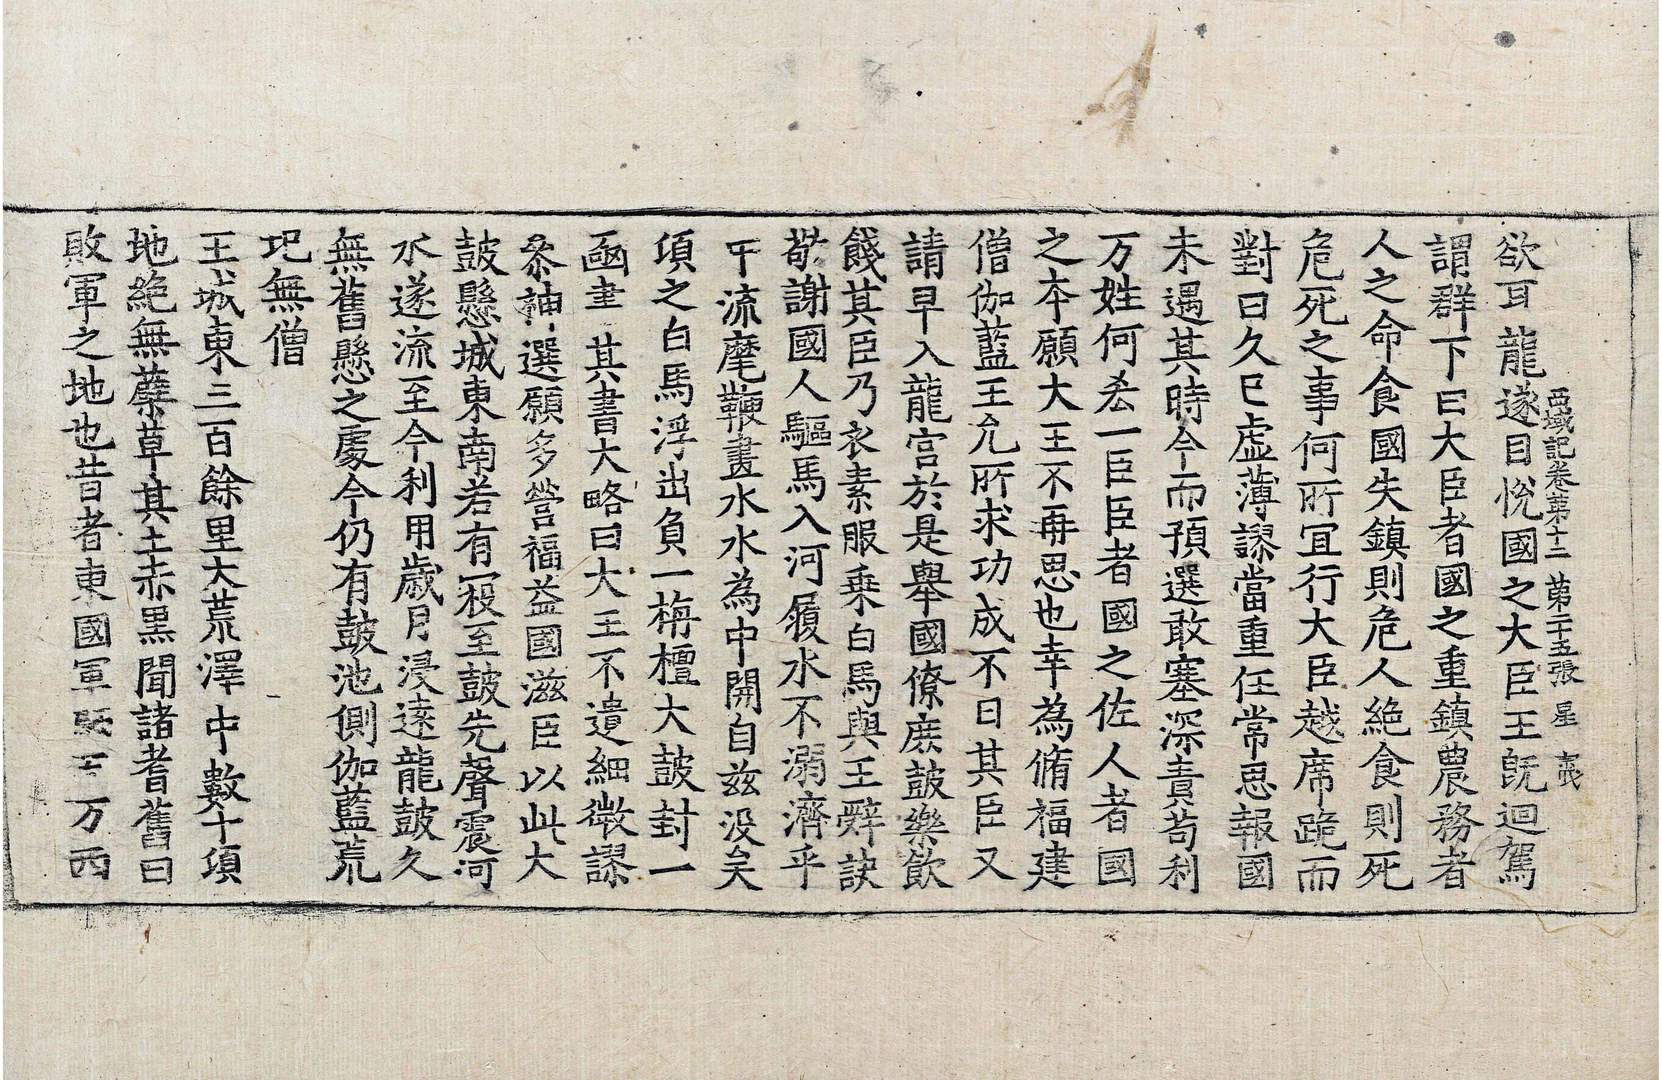 西域記卷第十二 第二十五張 星
欲耳龍遂目悅國之大臣王旣迴駕
謂群下曰大臣者國之重鎮農務者
人之命食國失鎮則危人絶食則死
危死之事何所宜行大臣越席跪而
對曰久已虛薄謬當重任常思報國
未遇其時今而預選敢塞深責苟利
万姓何𠫤一臣臣者國之佐人者國
之本願大王不再思也幸為脩福建
僧伽藍王允所求功成不日其臣又
請早入龍宮於是舉國僚庶鼓樂飲
餞其臣乃衣素服乗白馬與王辝訣
敬謝國人驅馬入河履水不溺濟乎
中流麾鞭畫水水為中開自兹没矣
項之白馬浮出負一栴檀大鼓封一
函書其書大略曰大王不遺細微謬
叅神選願多營福益國滋臣以此大
鼓懸城東南若有㓂至鼓先聲震河
水遂流至今利用歲月浸遠龍鼓久
無舊懸之處今仍有鼓池側伽藍荒
圯無僧
王城東三百餘里大荒澤中數十項
地絶無蘖草其土赤黒聞諸耆舊曰
敗軍之地也昔者東國軍 万西